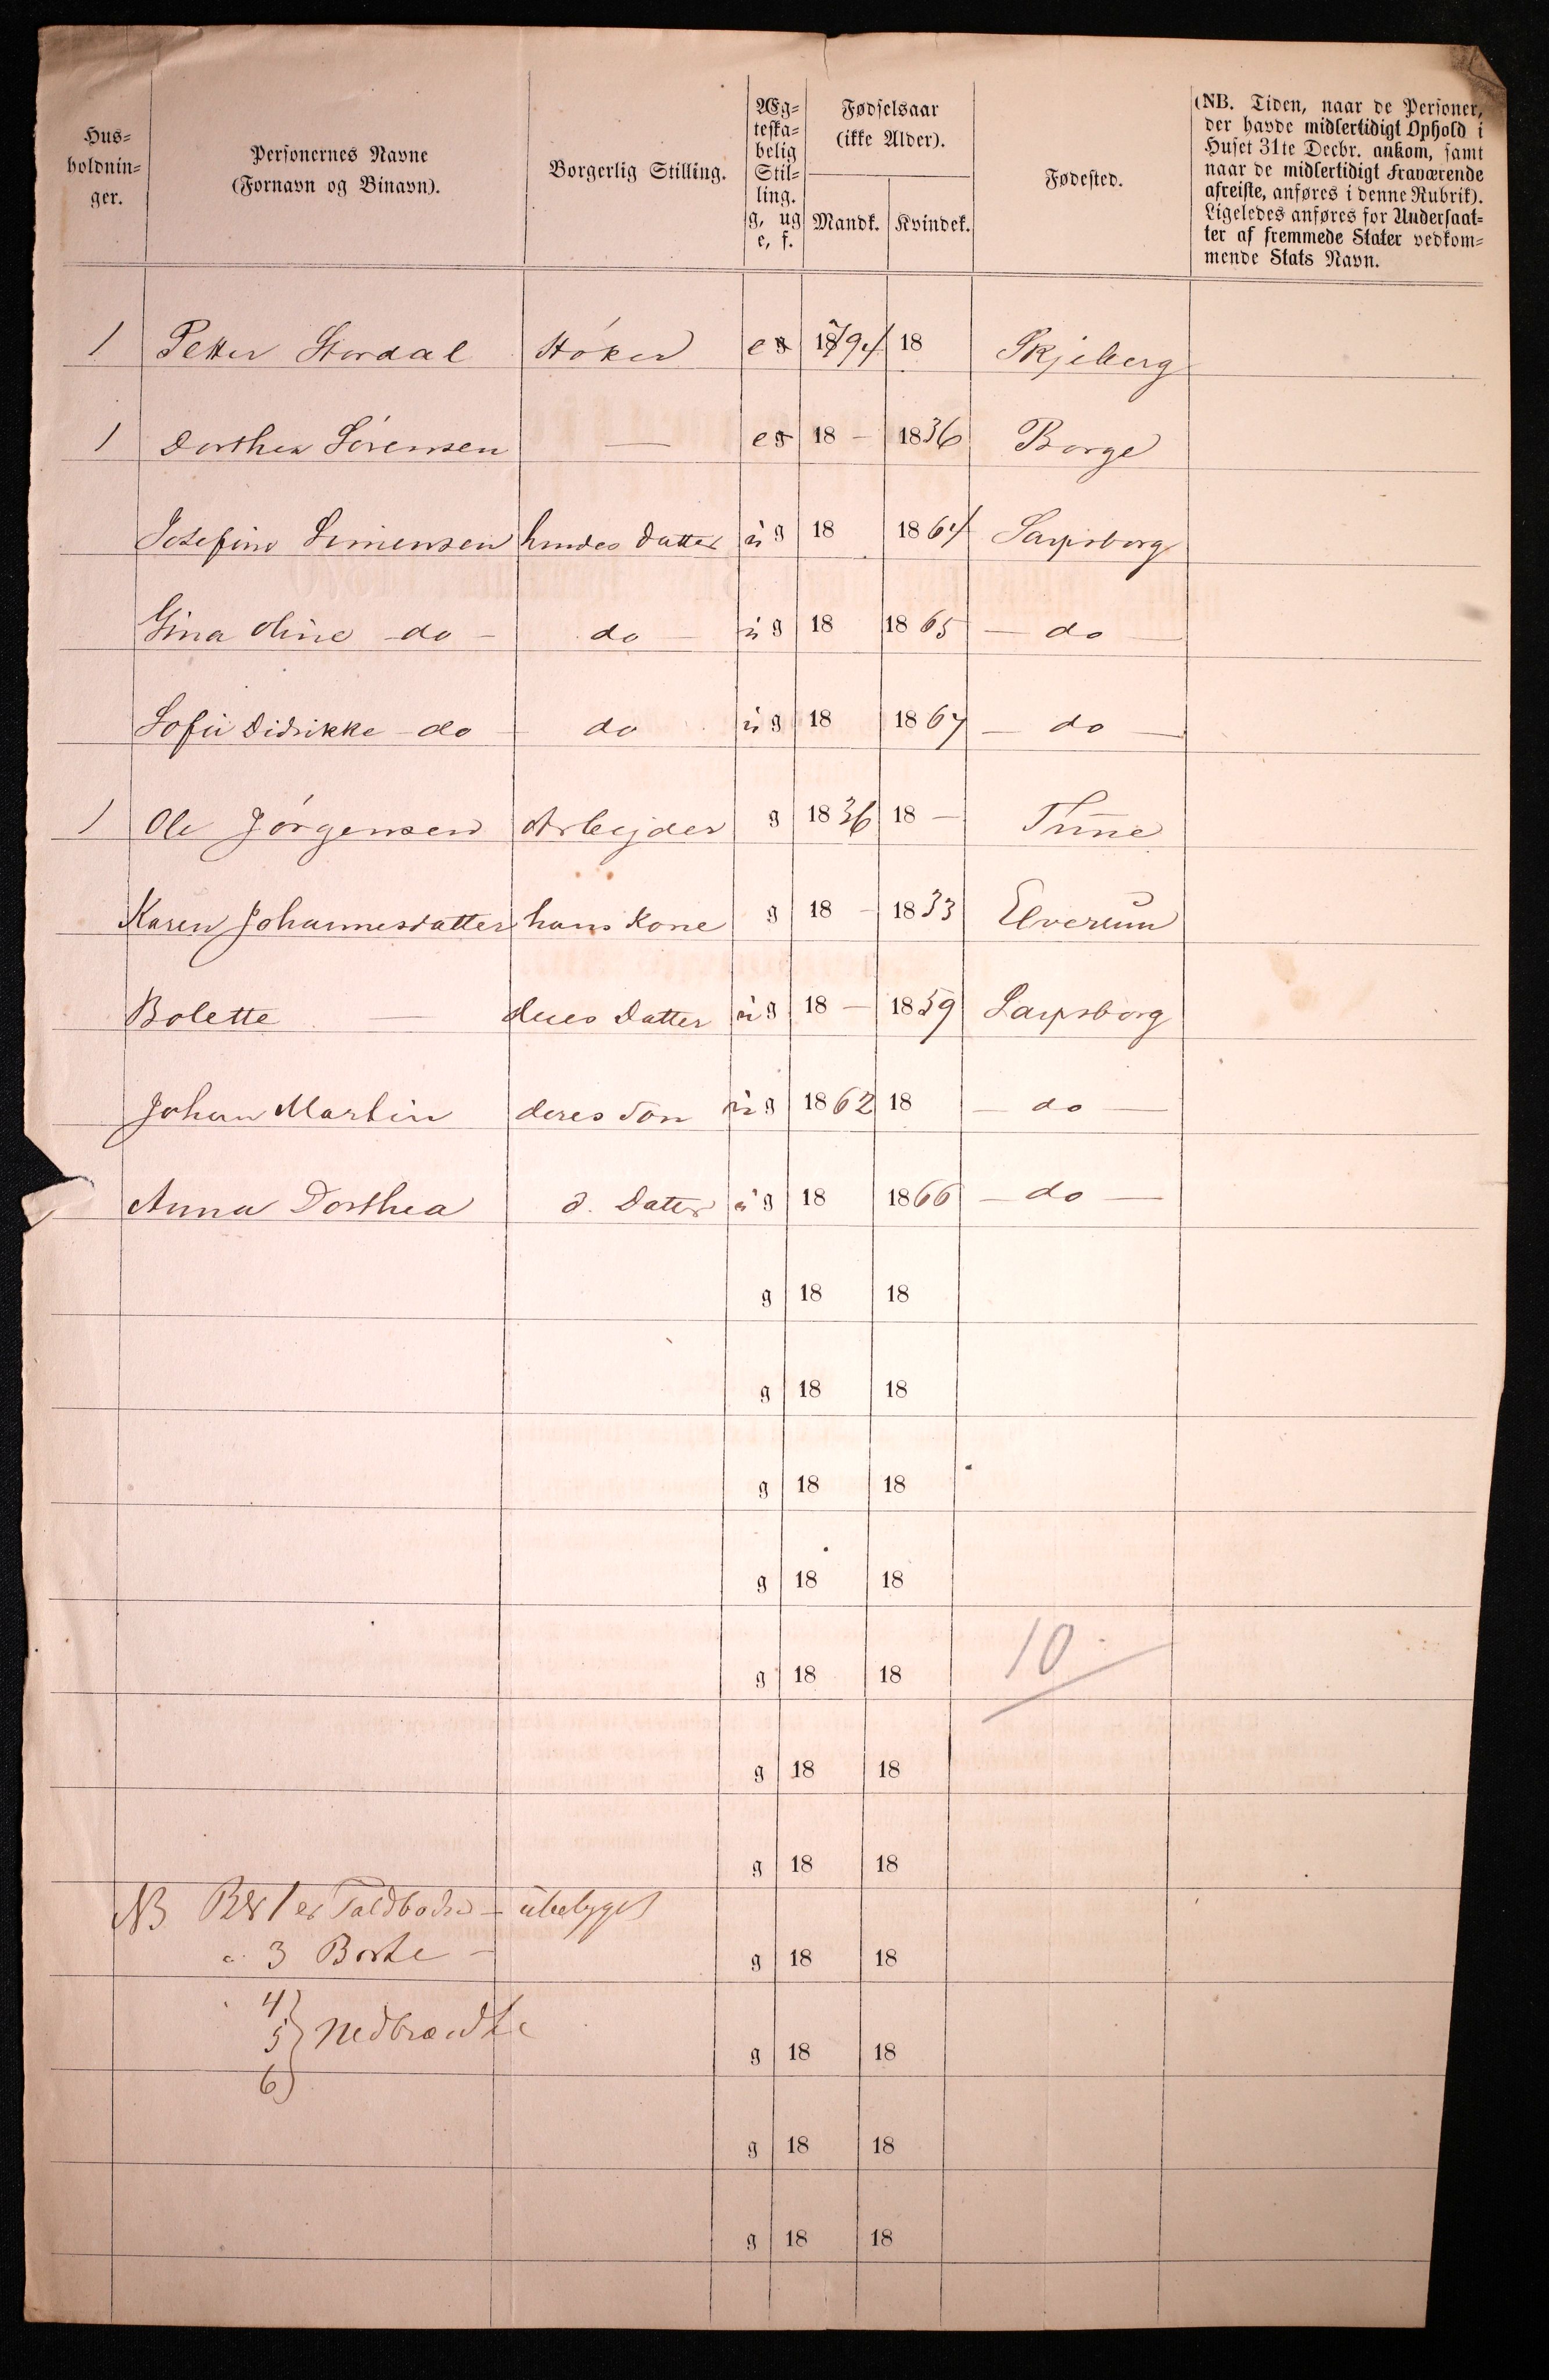 Hus=
holdnin=
ger.
Personernes Navne
(Fornavn og Binavn).
Borgerlig Stilling.
Æg=
teska=
belig
Stil=
ling.
g, ug
e, f.
Fødselsaar
(ikke Alder).
Mandk. Kvindek.
Fødested.
(NB. Tiden, naar de Personer,
der havde midlertidigt Ophold i
Huset 31te Decbr. ankom, samt
naar de midlertidigt Fraværende
afreiste, anføres i denne Rubrik).
Ligeledes anføres for Undersaat=
ter af fremmede Stater vedkom=
mende Stats Navn.
1 Petter Stordal Høker e g 1794 18 Skjeberg
1 Dorthea Sørensen — e g 18 — 1836 Borge
Josefine Simensen hendes Datter ug 18 1864 Sarpsborg
Gina Oline - do - do — ug 18 1865 — do —
Sofie Didrikke - do - do ug 18 1867 — do —
1 Ole Jørgensen Arbejder g 1836 18 — Thune
Karen Johannesdatter hans Kone g 18 — 1833 Elverum
Bolette — deres Datter ug 18 — 1859 Sarpsborg
Johan Martin deres Søn ug 1862 18 — do —
Anna Dorthea d. Datter ug 18 1866 — do —
g 18 18
g 18 18
g 18 18
g 18 18
g 18 18
10
g 18 18
g 18 18
NB 1 er Toldboden — ubebygget
" 3 Borte —
g 18 18
4)
5} Nedbrændte
g 18 18
6)
g 18 18
g 18 18